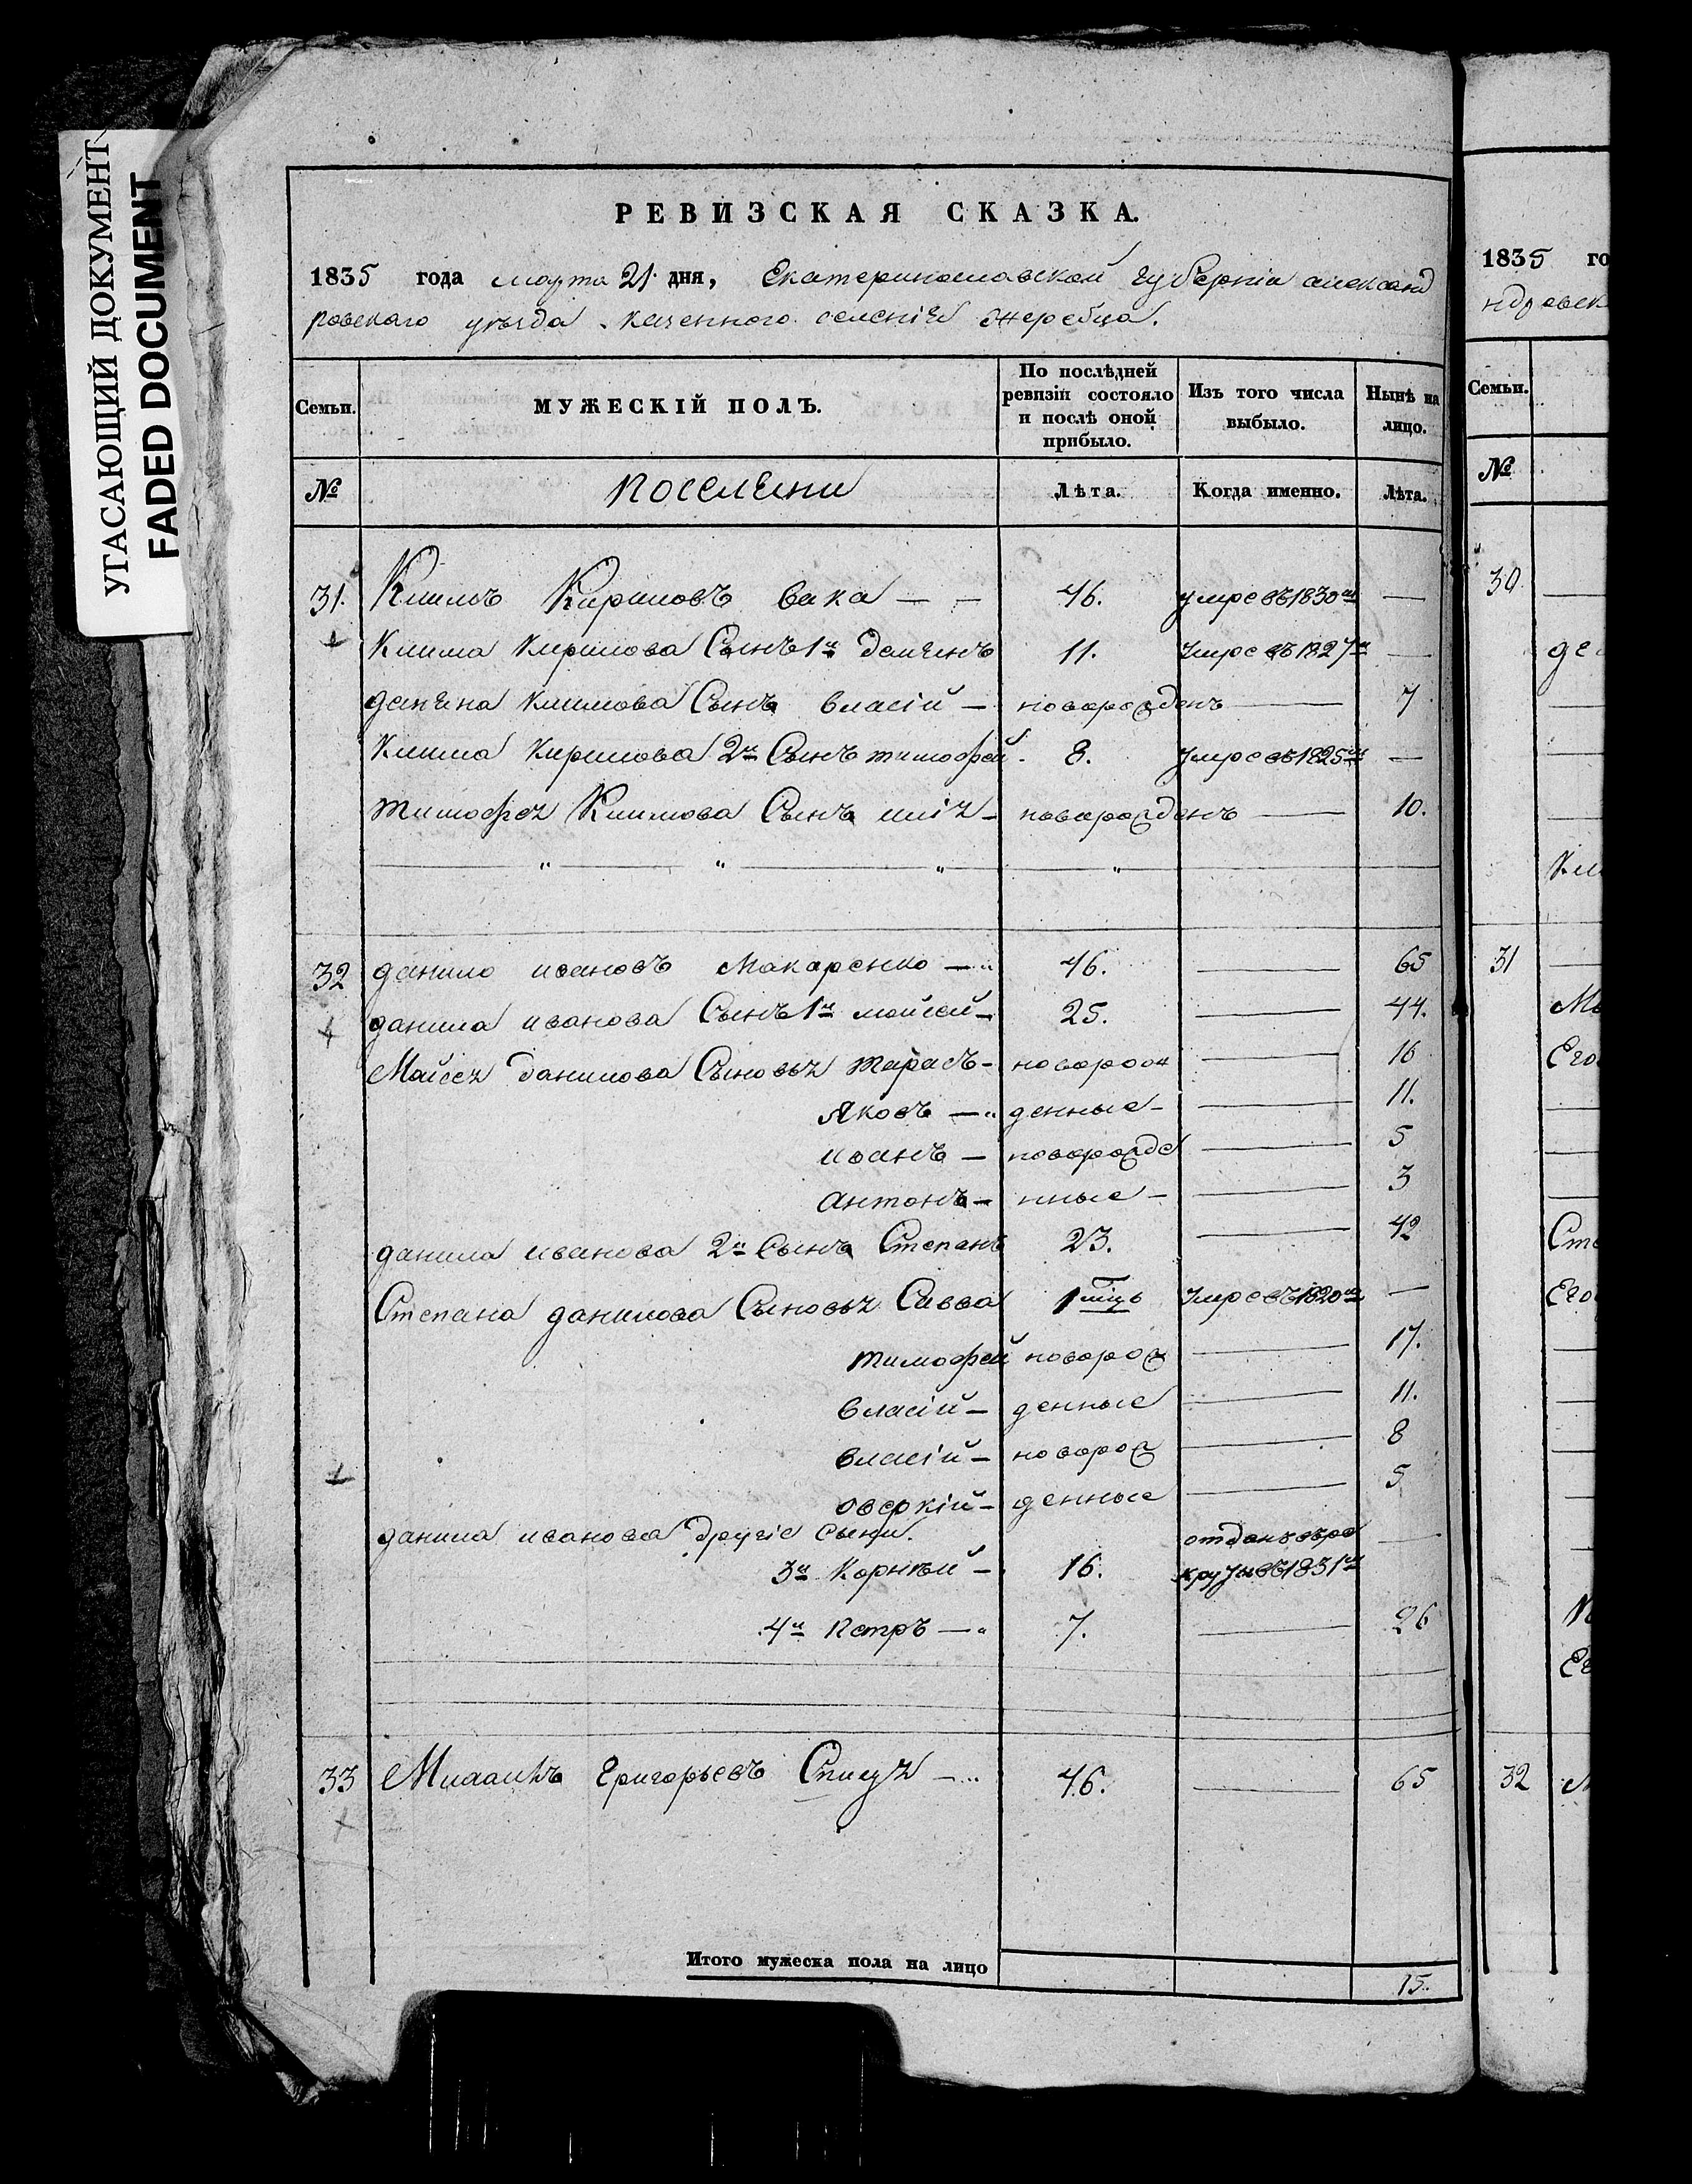 УГАСАЮЩИЙ ДОКУМЕНТ
FADED DOCUMENT
РЕВИЗСКАЯ СКАЗКА.
1835 года марта 21. дня, Екатеринославской губерніи александ
ровскаго уѣзда. казенного селенія Жеребца.
Семьи. МУЖЕСКІЙ ПОЛЪ. По послѣдней ревизіи состояло и послѣ оной прибыло. Изъ того числа выбыло. Нынѣ на лицо.
№ поселяни Лѣта. Когда именно. Лѣта.
31. Климъ Кириловъ Вака — — 46. умре въ 1830м —
Клима Кирилова Сынъ 1й Демянъ 11. Умре въ 1827м —
Климова Сынъ власій — новорожденъ — 7
Клима Кирилова 2й Сынъ тимофей 8. Умре въ 1825м —
тимофея Климова Сынъ илія — новорожденъ — 10.
32 данило ивановъ Макаренко — 46. — 65
данила иванова Сынъ 1й мойсей — 25. — 44.
Мойсея данилова Сыновья тарасъ — новорож — 16
Яковъ — денные — — 11.
иванъ — новорожде — 5
антонъ — нные — — 3
данила иванова 2й Сынъ Степанъ 23. — 42
Степана данилова Сыновья Савва 1 мць Умре въ 1820м —
тимофей новорож — 17.
власій — денные — 11.
власій — новорож — 8
оверкій — денные — 5
данила иванова другіе Сыни. отданъ въ ре —
3й Корнѣй — 16. круты въ 1831м
4й Петръ — 7. — 26
33 Григорьевъ Спица — 46. — 65
Итого мужеска пола на лицо 15.
1835 го
ндровск
Семьи.
№
30
де
Кли
31
Мо
Его
Сте
Его
32